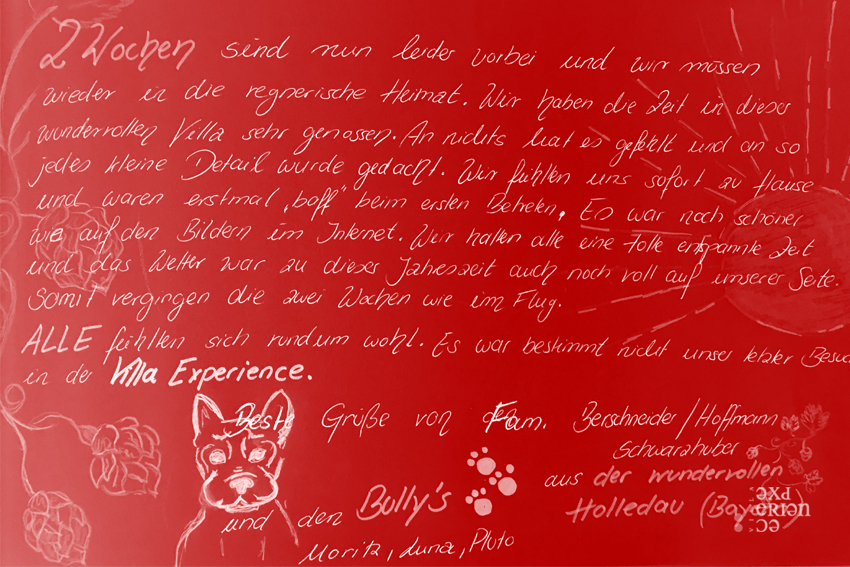 2 Wochen sind nun leider vorbei und wir müssen
wieder in die regnerische Heimat. Wir haben die Zeit in dieser
wundervollen Villa sehr genossen. An nichts hat es gefehlt und an so
jedes kleine Detail wurde gedacht. Wir fühlten uns sofort zu Hause
und waren erstmal „baff" beim ersten Betreten. Es war noch schöner
wie auf den Bildern im Internet. Wir hatten alle eine tolle entspannte Zeit
und das Wetter war zu dieser Jahreszeit auch noch voll auf unserer Seite.
Somit vergingen die zwei Wochen wie im Flug.
ALLE fühlten sich rundum wohl. Es war bestimmt nicht unser letzter Besuch
in der Villa Experience.
Beste Grüße von Fam. Berschneider/Hoffmann
Schwarzhuber
aus der wundervollen
Holledau (Bayern)
und den Bully's
Moritz, Luna, Pluto